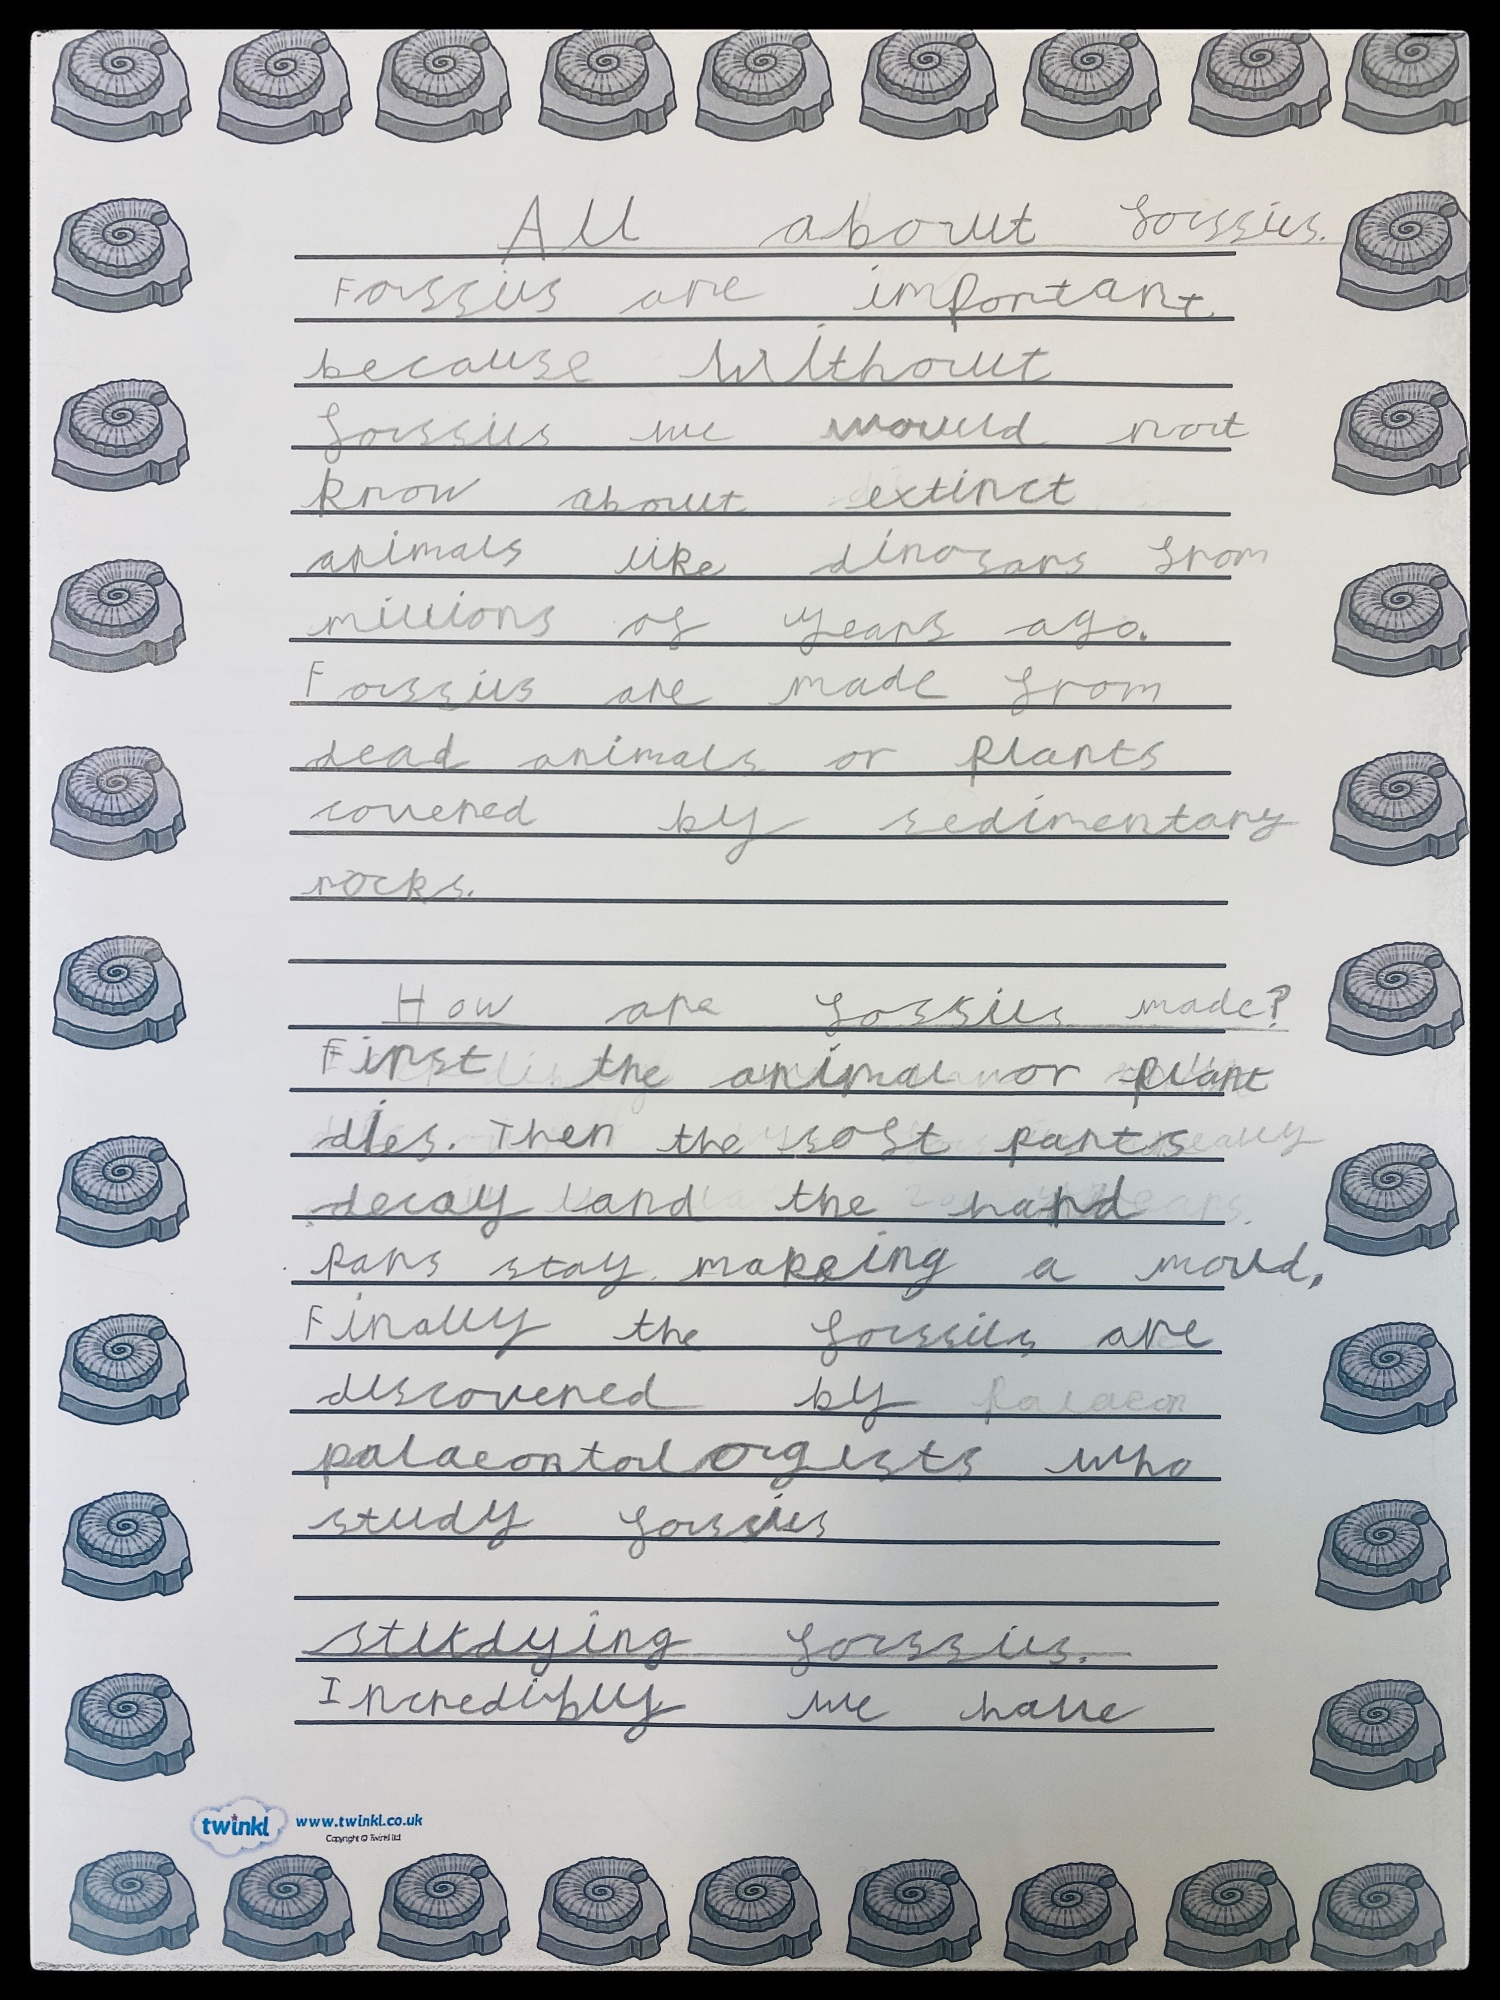 All about fossils.
Fossils are important
because without
fossils we would not
know about extinct
animals like dinosars from
millions of years ago.
Fossils are made from
dead animals or plants
covered by sedimentary
rocks.
How are fossils made?
First the animal or plant
dies. Then the soft parts
decay and the hard
pars stay makeing a mould.
Finally the fossils are
discovered by
palaeontologists who
study fossils
studying fossils.
Incredibly we have
twinkl www.twinkl.co.uk
Copyright © Twinkl Ltd